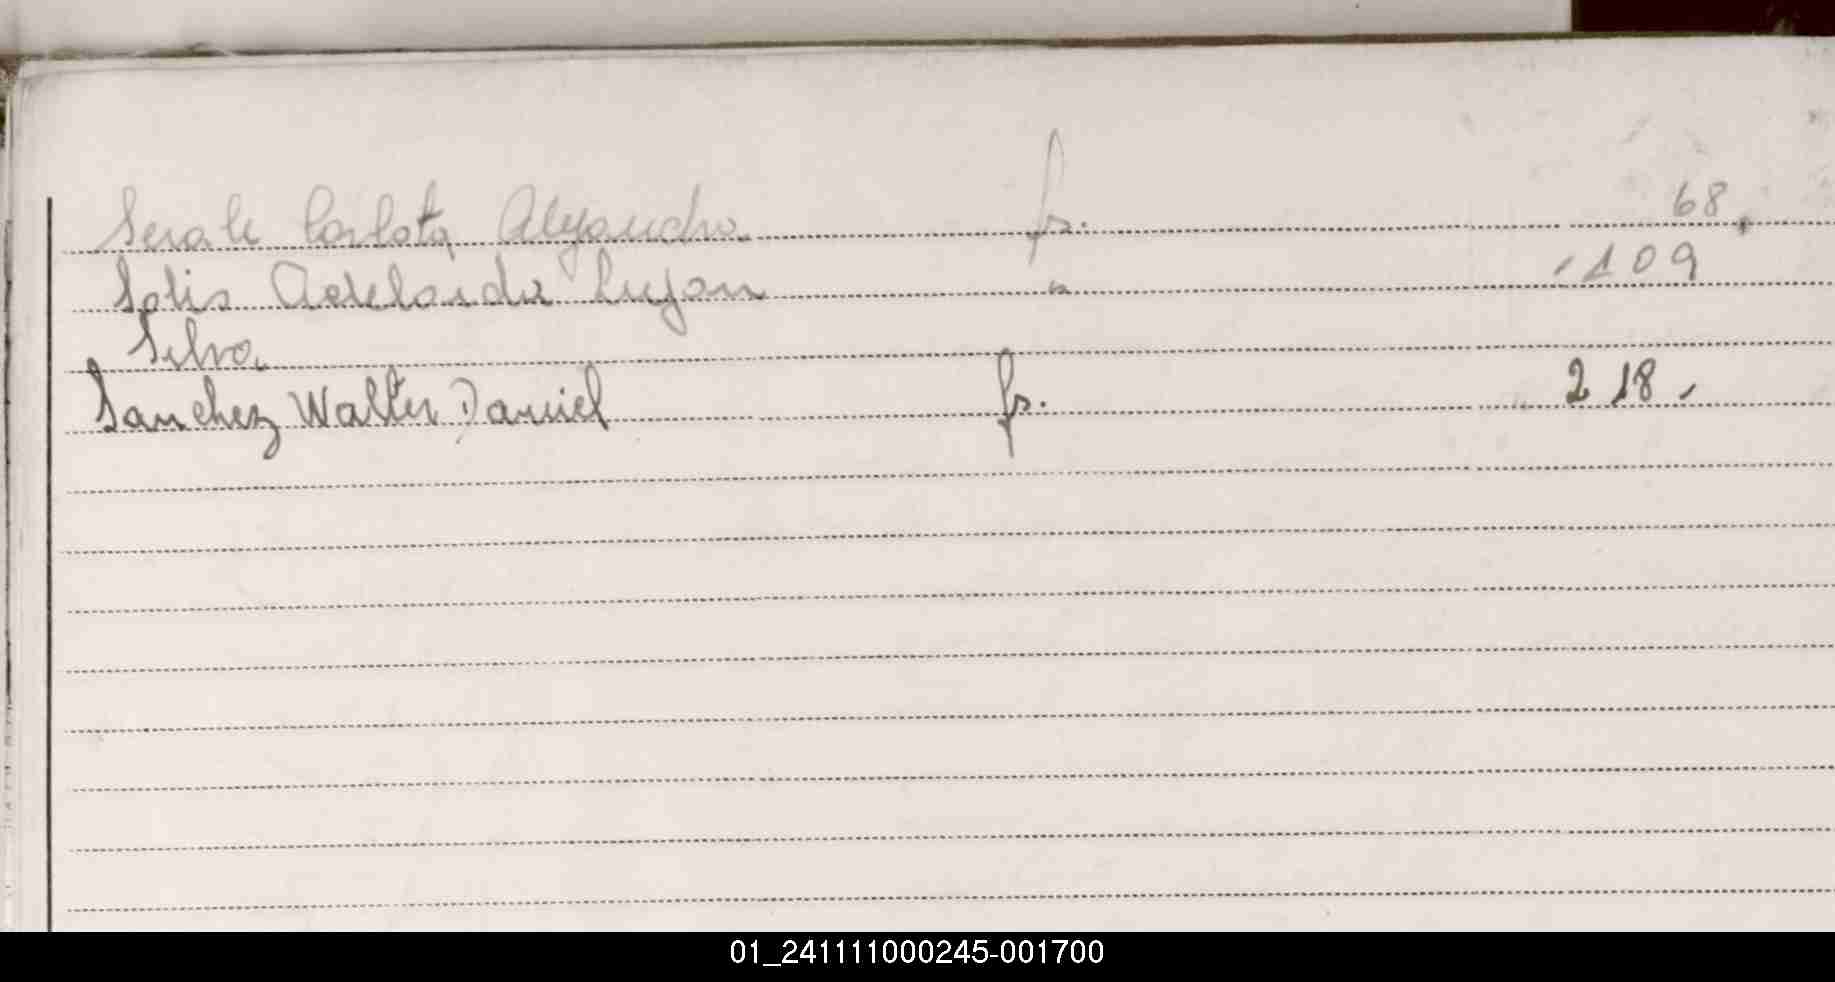 Serale Carlota Alejandra fs. 68.
Solis Adelaida Lujan " 109
Silva
Sanchez Walter Daniel fs. 218.
01_241111000245-001700